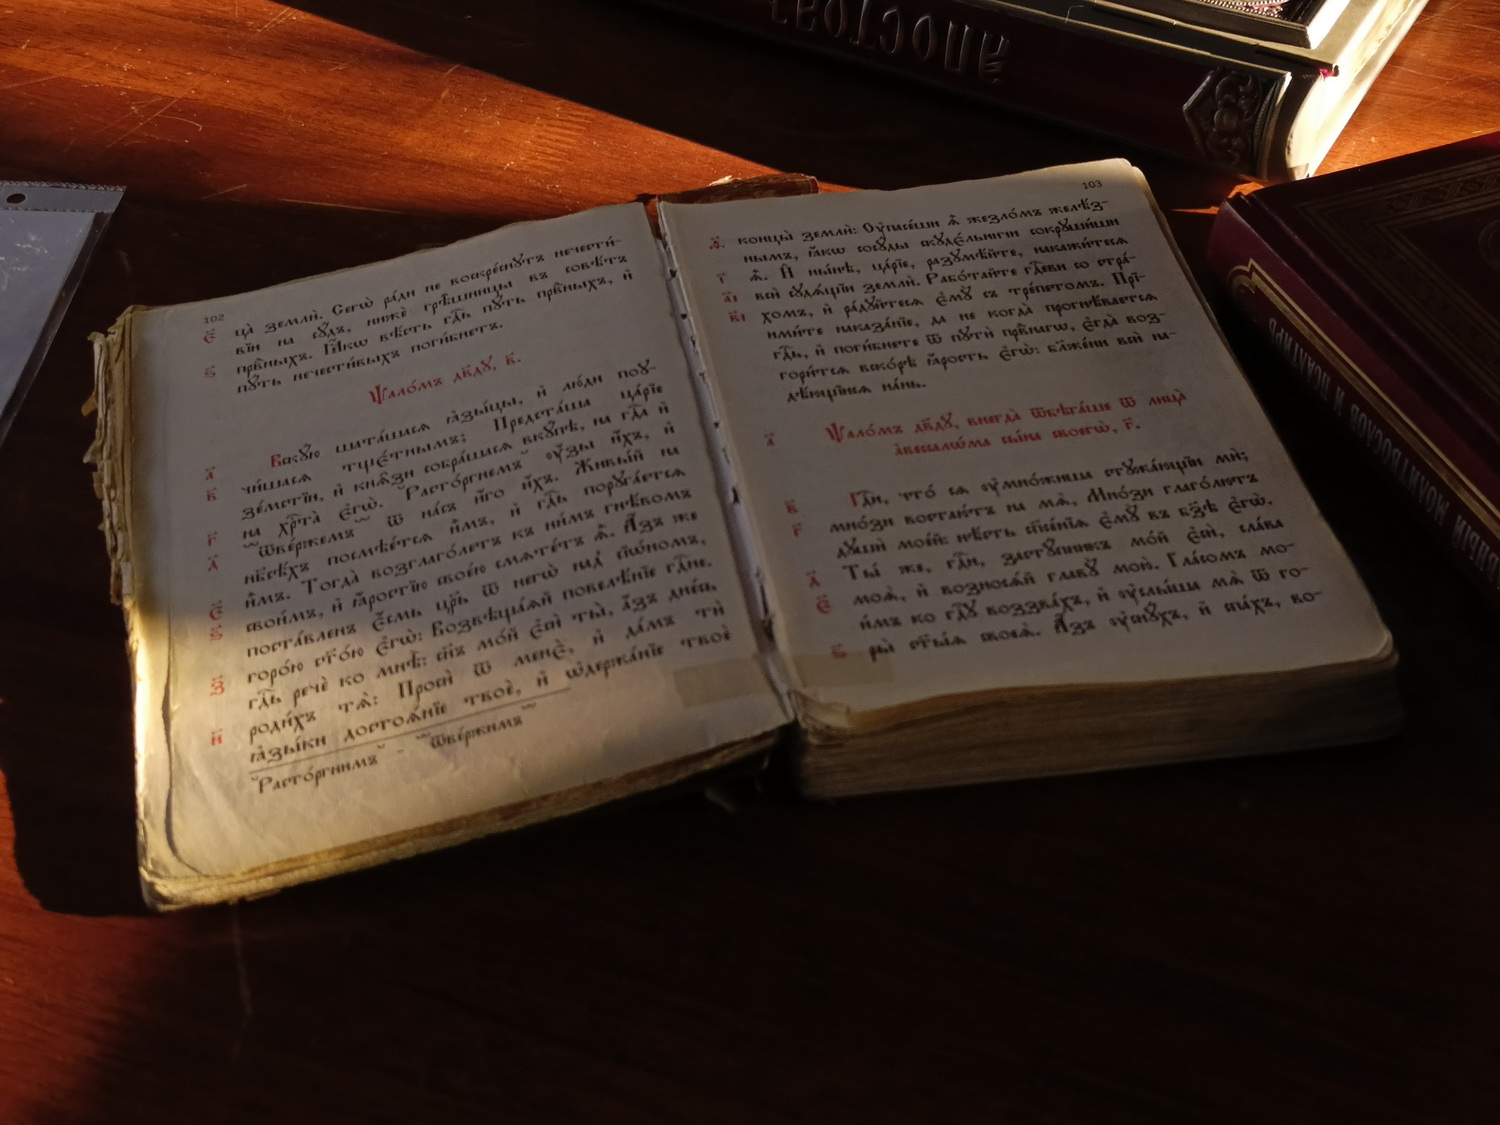 102
ца̀ землѝ. Сегѡ̀ ра́ди не воскре́снꙋтъ нечести́-
є҃ вїи на сꙋ́дъ, нижѐ грѣ́шницы въ совѣ́тъ
пра́вныхъ. Ꙗ҆́кѡ вѣ́сть гдⷭ҇ь пꙋ́ть првⷣныхъ, и҆
ѕ҃ пꙋ́ть нечести́выхъ поги́бнетъ.
Ѱало́мъ дв҃дꙋ, в҃.
а҃ Вскꙋ́ю шата́шасѧ ꙗ҆зы́цы, и҆ лю́дїе поꙋ-
в҃ чи́шасѧ тщє́тнымъ; Предста́ша ца́рїе
зе́мстїи, и҆ кнѧ̑зи собра́шасѧ вкꙋ́пѣ, на гдⷭ҇а и҆
г҃ на хрⷭ҇та̀ є҆гѡ̀. ⷮРасто́ргнемъⷮ ᲂу҆́зы и҆́хъ, и҆
ⷮѿве́ржемъⷮ ѿ на́съ и҆́го и҆́хъ. Живы́й на
д҃ нб҃сѣ́хъ посмѣе́тсѧ и҆̀мъ, и҆ гдⷭ҇ь порꙋга́етсѧ
є҃ и҆̀мъ. Тогда̀ возглаго́летъ къ ни̑мъ гнѣ́вомъ
свои́мъ, и҆ ꙗ҆́ростїю свое́ю смѧте́тъ ѧ҆̀. А҆́зъ же
ѕ҃ поста́вленъ є҆́смь цр҃ь ѿ негѡ̀ над̾ сїѡ́номъ,
горо́ю ст҃о́ю є҆гѡ̀: Возвѣща́ѧй повелѣ́нїе гдⷭ҇не.
з҃ гдⷭ҇ь речѐ ко мнѣ̀: сн҃ъ мо́й є҆сѝ ты̀, а҆́зъ дне́сь
роди́хъ тѧ̀: Просѝ ѿ менє̀, и҆ да́мъ тѝ
и҃ ꙗ҆зы́ки достоѧ́нїе твоѐ, и҆ ѡ҆держа́нїе твоѐ
ⷮРасто́ргнимъⷮ - ⷮѿве́ржимъⷮ
103
ѳ҃ концы̀ землѝ: ᲂу҆пасе́ши ѧ҆̀ жезло́мъ желѣ́з-
нымъ, ꙗ҆́кѡ сосꙋ́ды скꙋдє́льничи сокрꙋши́ши
і҃ ѧ҆̀. И҆ ны́нѣ, ца́рїе, разꙋмѣ́йте, накажи́тесѧ
а҃і всѝ сꙋдѧ́щїи землѝ. Рабо́тайте гдⷭ҇еви со стра́-
в҃і хомъ, и҆ ра́дꙋйтесѧ є҆мꙋ̀ съ тре́петомъ. Прї-
ими́те наказа́нїе, да не когда̀ прогнѣ́ваетсѧ
гдⷭ҇ь, и҆ поги́бнете ѿ пꙋтѝ првⷣнагѡ, є҆гда̀ воз-
гори́тсѧ вско́рѣ ꙗ҆́рость є҆гѡ̀: блⷤе́ни всѝ на-
дѣ́ющїисѧ на́нь.
а҃ Ѱало́мъ дв҃дꙋ, внегда̀ ѿбѣга́ше ѿ лица̀
а҆вессалѡ́ма сы́на своегѡ̀, г҃.
в҃ Гдⷭ҇и, что́ сѧ ᲂу҆мно́жиша стꙋжа́ющїи мѝ;
г҃ мно́зи востаю́тъ на мѧ̀, Мно́зи глаго́лютъ
дꙋшѝ мое́й: нѣ́сть спⷭ҇е́нїѧ є҆мꙋ̀ въ бз҃ѣ є҆гѡ̀.
д҃ Ты́ же, гдⷭ҇и, застꙋ́пникъ мо́й є҆сѝ, сла́ва
є҃ моѧ̀, и҆ вознось́й главꙋ̀ мою̀. Гла́сомъ мо-
и́мъ ко гдⷭ҇ꙋ воззва́хъ, и҆ ᲂу҆слы́ша мѧ̀ ѿ го-
ѕ҃ ры̀ ст҃ы́ѧ своеѧ̀. А҆́зъ ᲂу҆снꙋ́хъ, и҆ спа́хъ, во-
АПОСТОЛЪ
МОЛИТВОСЛОВ И ПСАЛТИРЬ